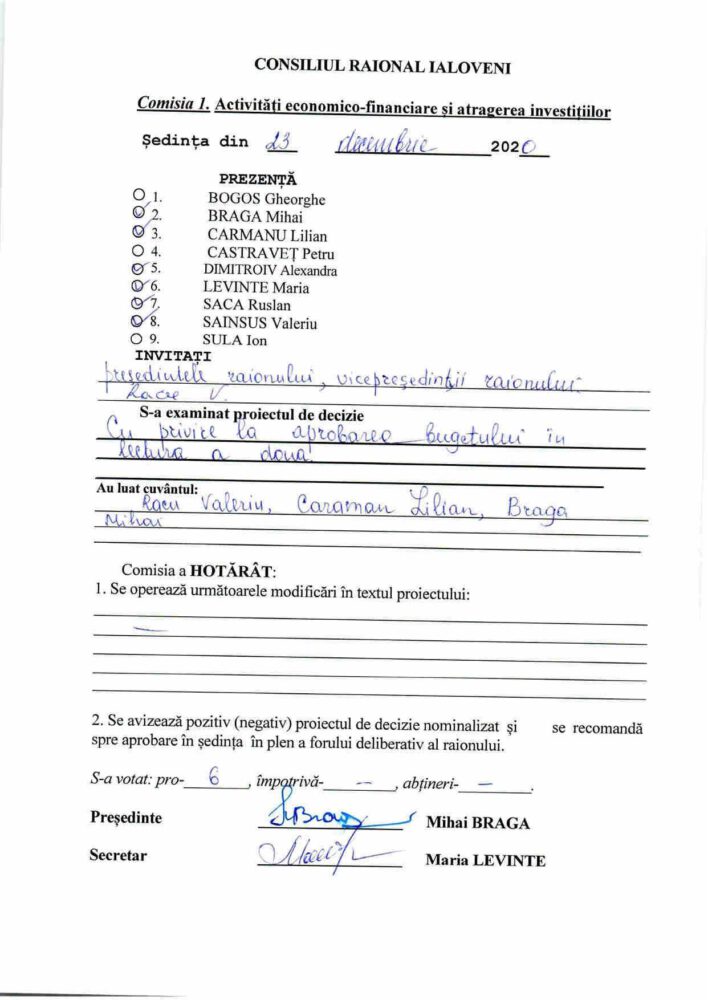 CONSILIUL RAIONAL IALOVENI
Comisia 1. Activităţi economico-financiare şi atragerea investiţiilor
Şedinţa din 23 decembrie 2020
PREZENŢĂ
1. BOGOS Gheorghe
2. BRAGA Mihai
3. CARMANU Lilian
4. CASTRAVEŢ Petru
5. DIMITROIV Alexandra
6. LEVINTE Maria
7. SACA Ruslan
8. SAINSUS Valeriu
9. SULA Ion
INVITAŢI
preşedintele raionului, vicepreşedinţii raionului
V.
S-a examinat proiectul de decizie
Cu privire la aprobarea bugetului în
lectura a doua
Au luat cuvântul:
Racu Valeriu, Caraman Lilian, Braga
Mihai
Comisia a HOTĂRÂT:
1. Se operează următoarele modificări în textul proiectului:
—
2. Se avizează pozitiv (negativ) proiectul de decizie nominalizat şi se recomandă
spre aprobare în şedinţa în plen a forului deliberativ al raionului.
S-a votat: pro- 6, împotrivă- —, abţineri- —.
Preşedinte Mihai BRAGA
Secretar Maria LEVINTE